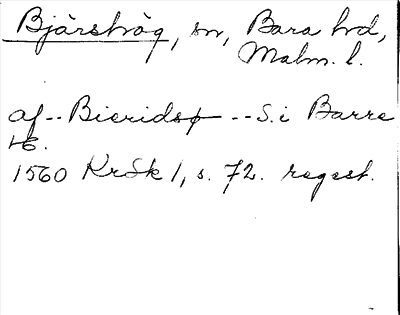 Bjärshög, sn, Bara hd,
Malm. l.
af -- Bieridsø -- S. i Barre
HE.
1560 KrSk 1, s. 72. regest.